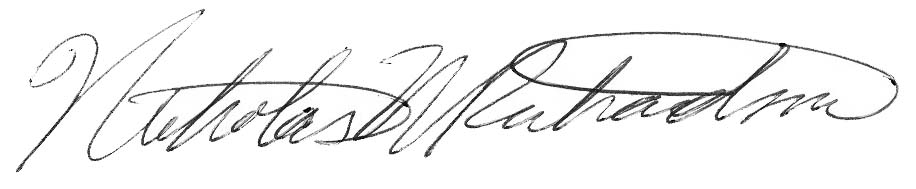 Nicholas M Richardson